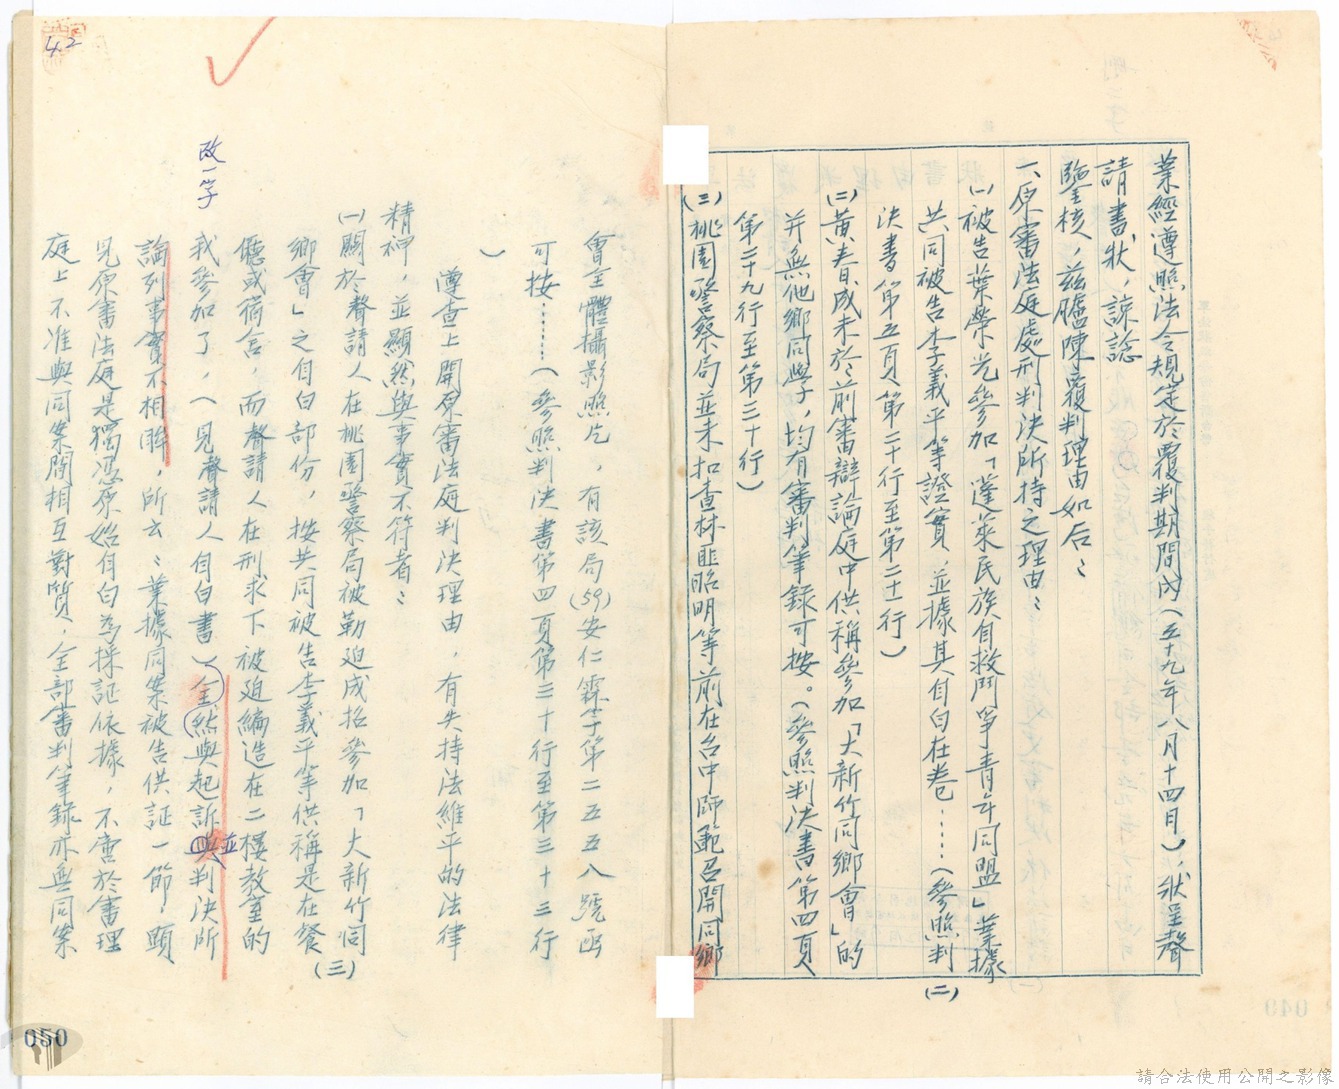 業經遵照法令規定於覆判期間內(五十九年八月十四日),狀呈聲
請書狀,諒諗
鑒核,茲臚陳覆判理由如后:
一、原審法庭處刑判決所持之理由:
(一)被告葉榮光參加「蓬萊民族自救鬥爭青年同盟」業據
共同被告李義平等證實,並據其自白在卷……(參照判
決書第五頁第二十行至第二十一行)
(二)黃春成未於前審辯論庭中供稱參加「大新竹同鄉會」的
并無他鄉同學,均有審判筆錄可按。(參照判決書第四頁
第二十九行至第三十行)
(三)桃園警察局並未扣查林匪昭明等前在台中師範召開同鄉
(二)
會全體攝影照片,有該局(59)安仁霖字第二五五八號函
可按……(參照判決書第四頁第三十行至第三十三行
)
遵查上開原審法庭判決理由,有失持法維平的法律
精神,並顯然與事實不符者:
(一)關於聲請人在桃園警察局被勒迫成招參加「大新竹同
鄉會」之自白部份,按共同被告李義平等供稱是在餐
廳或宿舍,而聲請人在刑求下被迫編造在二樓教室的
我參加了,(見聲請人自白書)全然與起訴與並判決所
論列事實不相眸,所云:業據同案被告供証一節,顯
見原審法庭是獨憑原始自白為採証依據,不啻於審理
庭上不准與同案間相互對質,全部審判筆錄亦無同案
(三)
改一字
42
050
049
請合法使用公開之影像